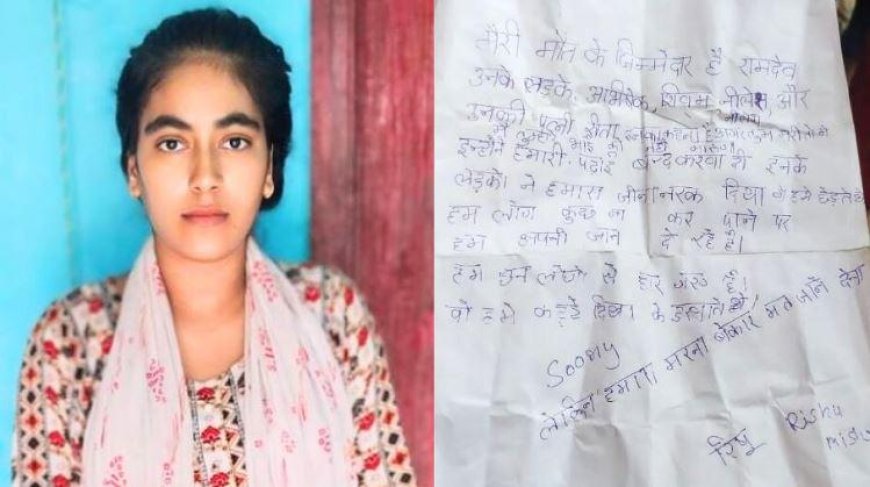 मेरी मौत के जिम्मेदार है रामदेव
उनके लड़के, अभिषेक, शिवम, नीलेश, और
उनकी पत्नी
इन्होंने हमारी पढ़ाई बन्द करवा दी इनके
लड़को ने हमारा जीना नरक दिया
हम लोग कुछ ना कर पाने पर
हम अपनी जान दे रहे है।
हम उन लोगो से हार गये है।
वो हमे कट्टे दिखा के डराते थे।
Soory
लेकिन हमारा मरना बेकार मत जाने देना
रिशु Rishu